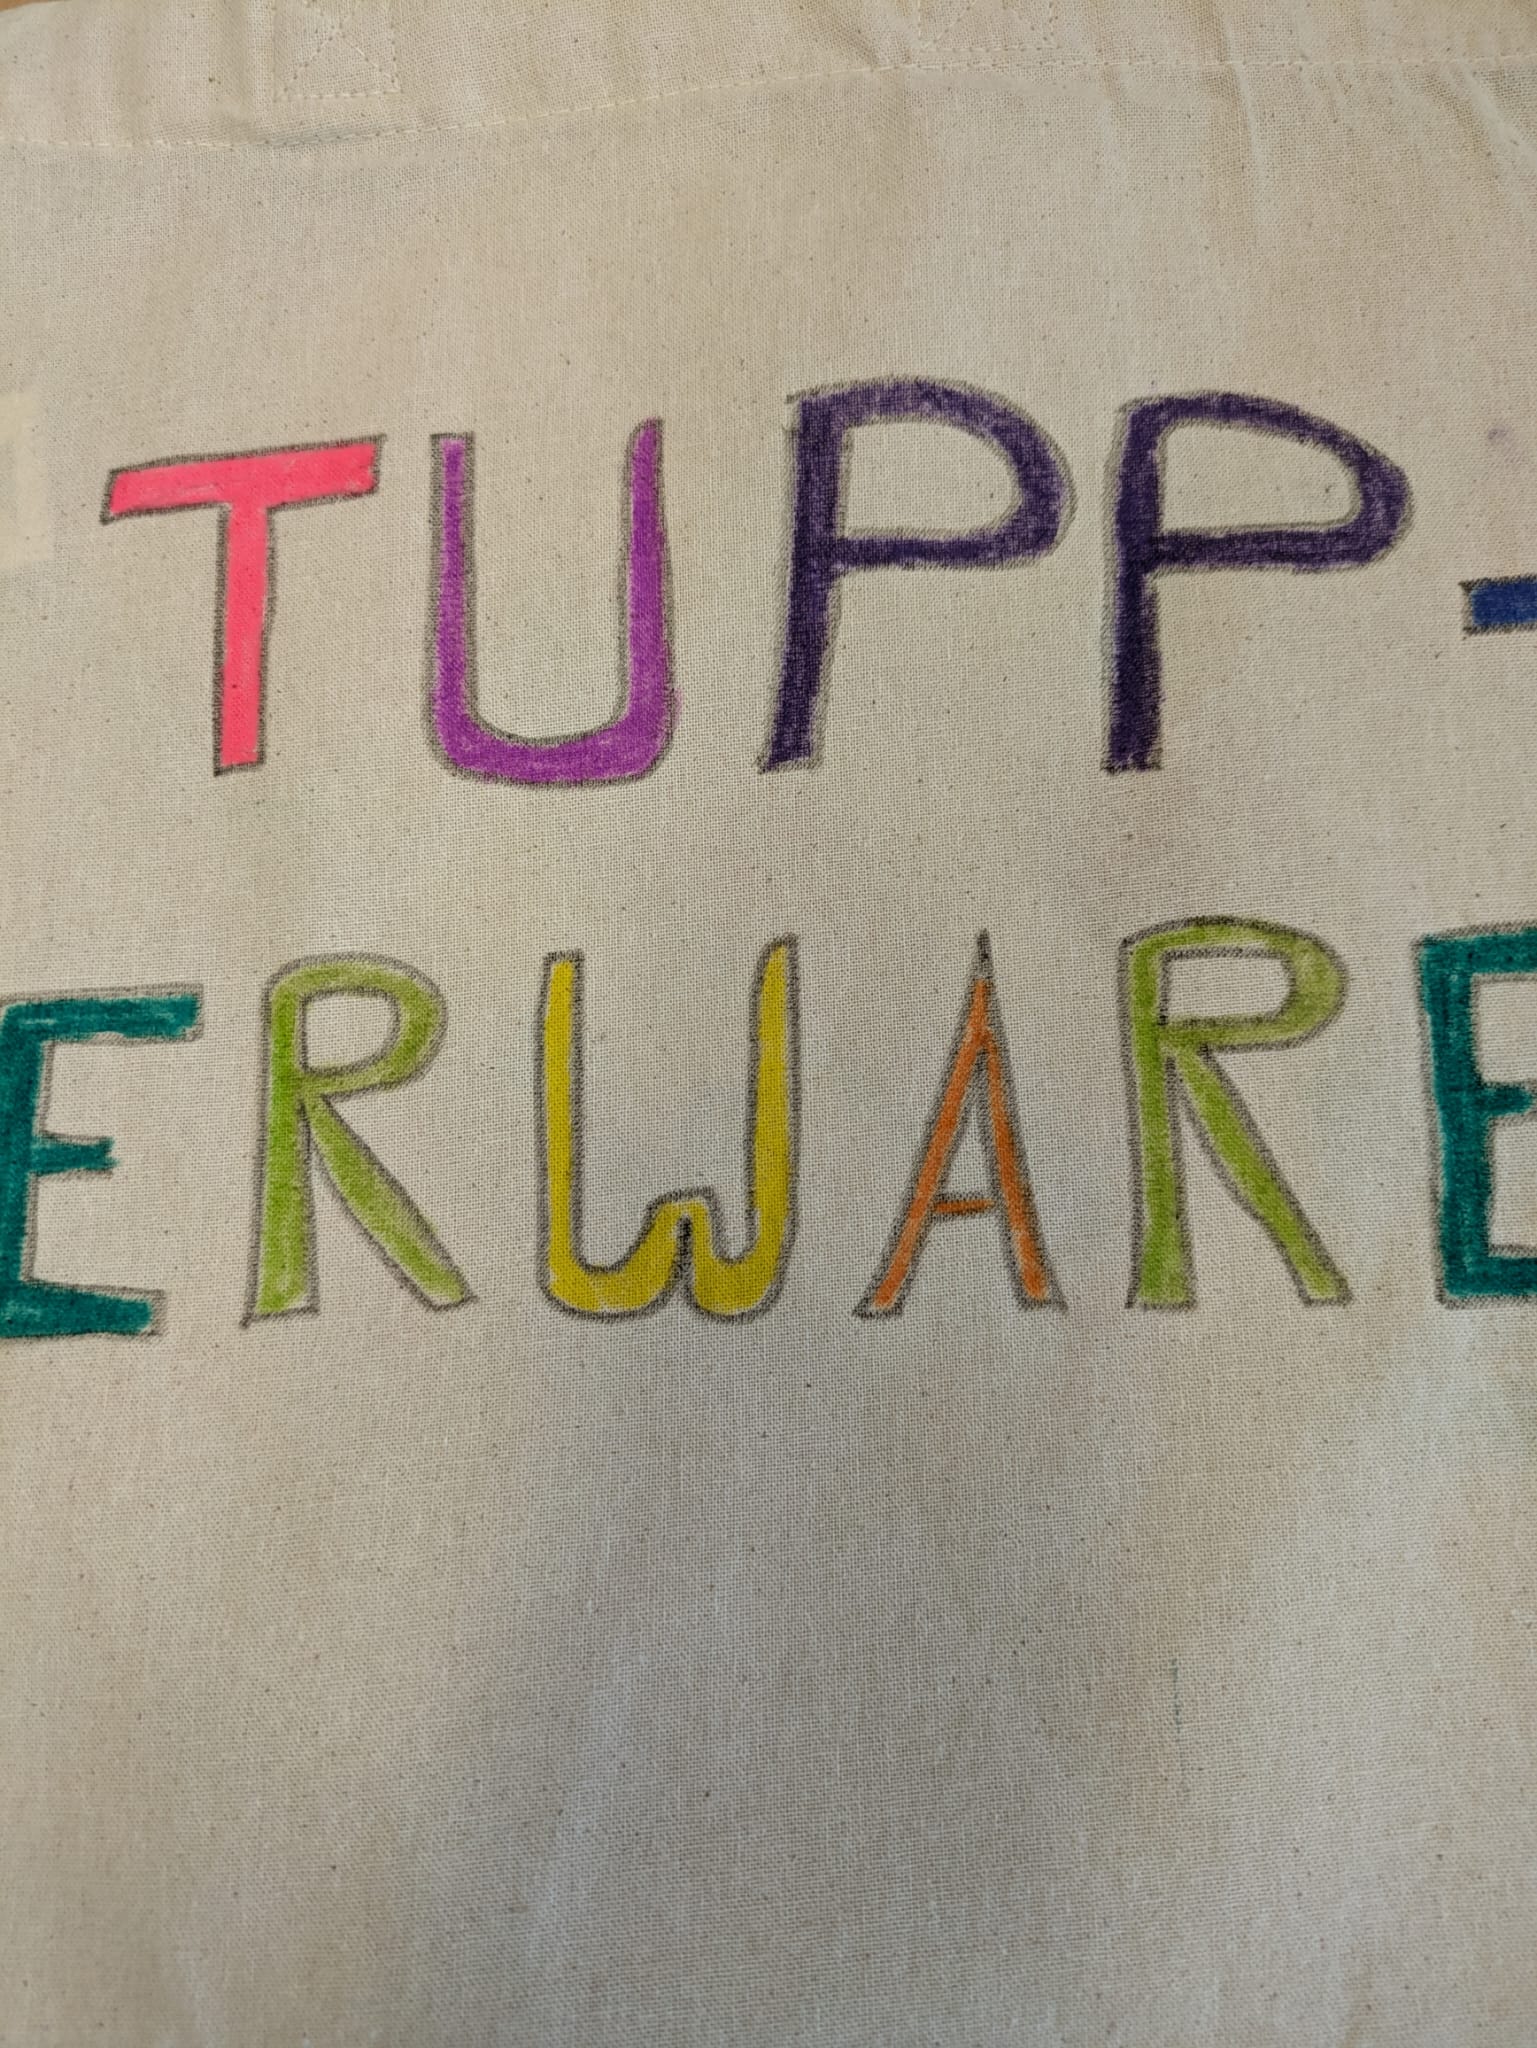 TUPP-
ERWARE